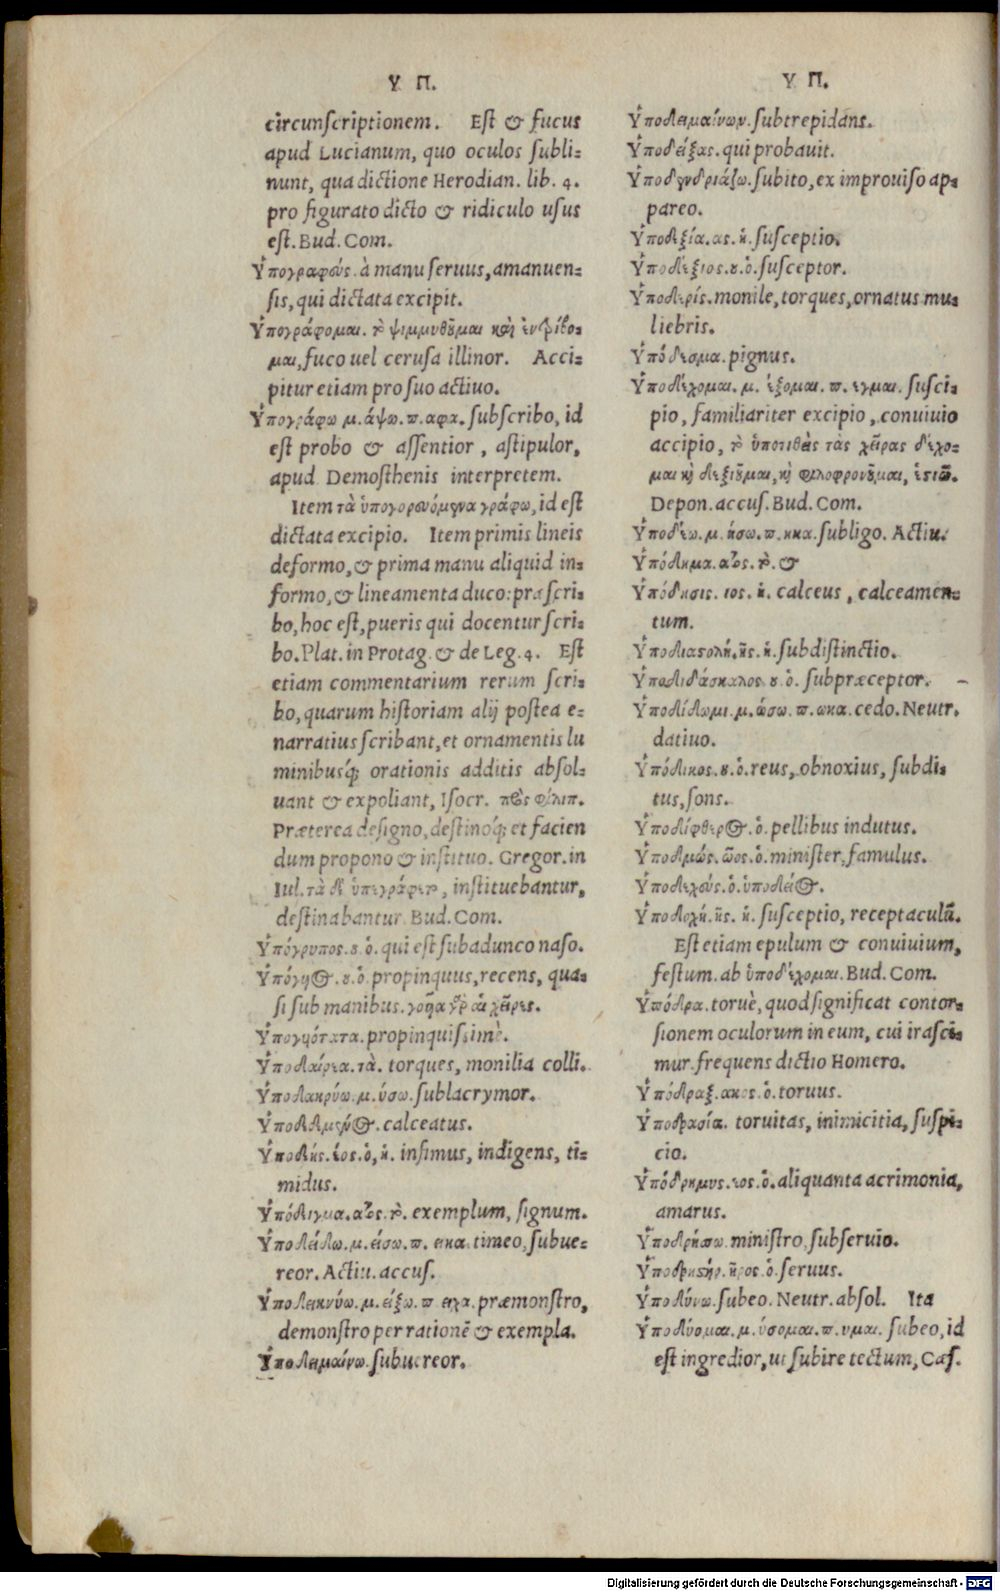 Υ Π.
circunscriptionem. Est & fucus
apud Lucianum, quo oculos subli=
nunt, qua dictione Herodian. lib. 4.
pro figurato dicto & ridiculo usus
est. Bud. Com.
Ὑπογραφεύς. à manu seruus, amanuen=
sis, qui dictata excipit.
Ὑπογράφομαι. τὸ ψιμμυθοῦμαι καὶ ἐντρίβο=
μαι, fuco uel cerusa illinor. Acci=
pitur etiam pro suo actiuo.
Ὑπογράφω μ. άψω. π. αφα. subscribo, id
est probo & assentior, astipulor,
apud Demosthenis interpretem.
Item τὰ ὑπαγορευόμενα γράφω, id est
dictata excipio. Item primis lineis
deformo, & prima manu aliquid in=
formo, & lineamenta duco: præscri=
bo, hoc est, pueris qui docentur scri=
bo. Plat. in Protag. & de Leg. 4. Est
etiam commentarium rerum scri=
bo, quarum historiam alij postea e=
narratius scribant, et ornamentis lu
minibusq́; orationis additis absol=
uant & expoliant, Isocr. πρὸς φίλιπ.
Præterea designo, destinoq́; et facien
dum propono & instituo. Gregor. in
Iul. τὰ δὲ ὑπεγράφετο, instituebantur,
destinabantur. Bud. Com.
Ὑπόγρυπος. ου ὁ. qui est subadunco naso.
Ὑπόγυος. ου. ὁ. propinquus, recens, qua=
si sub manibus. γυῖα γὸ αἱ χεῖρες.
Ὑπογυότατα. propinquissimè.
Ὑποδαίρεια. τὰ. torques, monilia colli.
Ὑποδακρύω. μ. ύσω. sublacrymor.
Ὑποδεδεμένος. calceatus.
Ὑποδεής. έος. ὁ, ἡ. infimus, indigens, ti=
midus.
Ὑπόδειγμα. ατος. τὸ. exemplum, signum.
Ὑποδείδω. μ. είσω. π. εικα. timeo, subue=
reor. Actiu. accus.
Ὑποδεικνύω. μ. είξω. π. ειχα. præmonstro,
demonstro per rationē & exempla.
Ὑποδειμαίνω. subuereor.
Υ Π.
Ὑποδειμαίνων. subtrepidans.
Ὑποδείξας. qui probauit.
Ὑποδενδριάζω. subito, ex improuiso ap=
pareo.
Ὑποδεξία. ας. ἡ. susceptio.
Ὑποδέξιος. ου. ὁ. susceptor.
Ὑποδερίς. monile, torques, ornatus mu=
liebris.
Ὑπόδεσμα. pignus.
Ὑποδέχομαι. μ. έξομαι. π. εγμαι. susci=
pio, familiariter excipio, conuiuio
accipio, τὸ ὑποτιθεὶς τὰς χεῖρας δέχο=
μαι καὶ δεξιοῦμαι, καὶ φιλοφρονοῦμαι, ἑστιῶ.
Depon. accus. Bud. Com.
Ὑποδέω. μ. ήσω. π. ηκα. subligo. Actiu.
Ὑπόδημα. ατος. τὸ. &
Ὑπόδησις. ιος. ἡ. calceus, calceamen=
tum.
Ὑποδιαστολή. ῆς. ἡ. subdistinctio.
Ὑποδιδάσκαλος. ου ὁ. subpræceptor.
Ὑποδίδωμι. μ. ώσω. π. ωκα. cedo. Neutr.
datiuo.
Ὑπόδικος. ου. ὁ. reus, obnoxius, subdi=
tus, sons.
Ὑποδίφθερος. ὁ. pellibus indutus.
Ὑποδμώς. ῶος. ὁ. minister, famulus.
Ὑποδοχεύς. ὁ. ὑποδέιος.
Ὑποδοχή. ῆς. ἡ. susceptio, receptaculū.
Est etiam epulum & conuiuium,
festum. ab ὑποδέχομαι. Bud. Com.
Ὑπόδρα. toruè, quod significat contor=
sionem oculorum in eum, cui irasci=
mur. frequens dictio Homero.
Ὑπόδραξ. ακος. ὁ. toruus.
Ὑποδρασία. toruitas, inimicitia, suspi=
cio.
Ὑπόδριμυς. εος. ὁ. aliquanta acrimonia,
amarus.
Ὑποδρήσσω ministro, subseruio.
Ὑποδρηστήρ. ῆρος. ὁ. seruus.
Ὑποδύνω. subeo. Neutr. absol. Ita
Ὑποδύομαι. μ. ύσομαι. π. υμαι. subeo, id
est ingredior, ut subire tectum, Cæs.
Digitalisierung gefördert durch die Deutsche Forschungsgemeinschaft - DFG